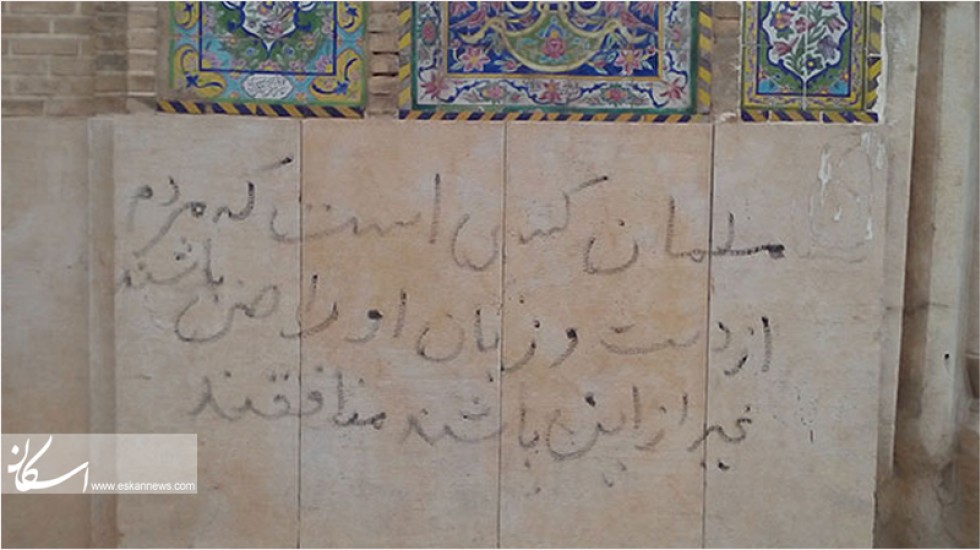 مسلمان کسی است که مردم
از دست و زبان او راضی باشند
غیر از این باشند منافقند
اسکان
www.eskannews.com